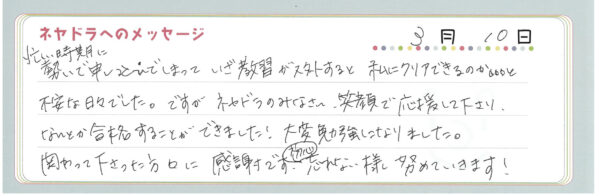 ネヤドラへのメッセージ 3月10日
忙しい時期に
勢いで申し込んでしまって いざ教習がスタートすると 私にクリアできるのか…と
不安な日々でした。ですが ネヤドラのみなさい、笑顔で応援して下さり、
なんとか合格することができました! 大変勉強になりました。
関わって下さった方々に 感謝です! 初心 忘れない様 努めていきます!